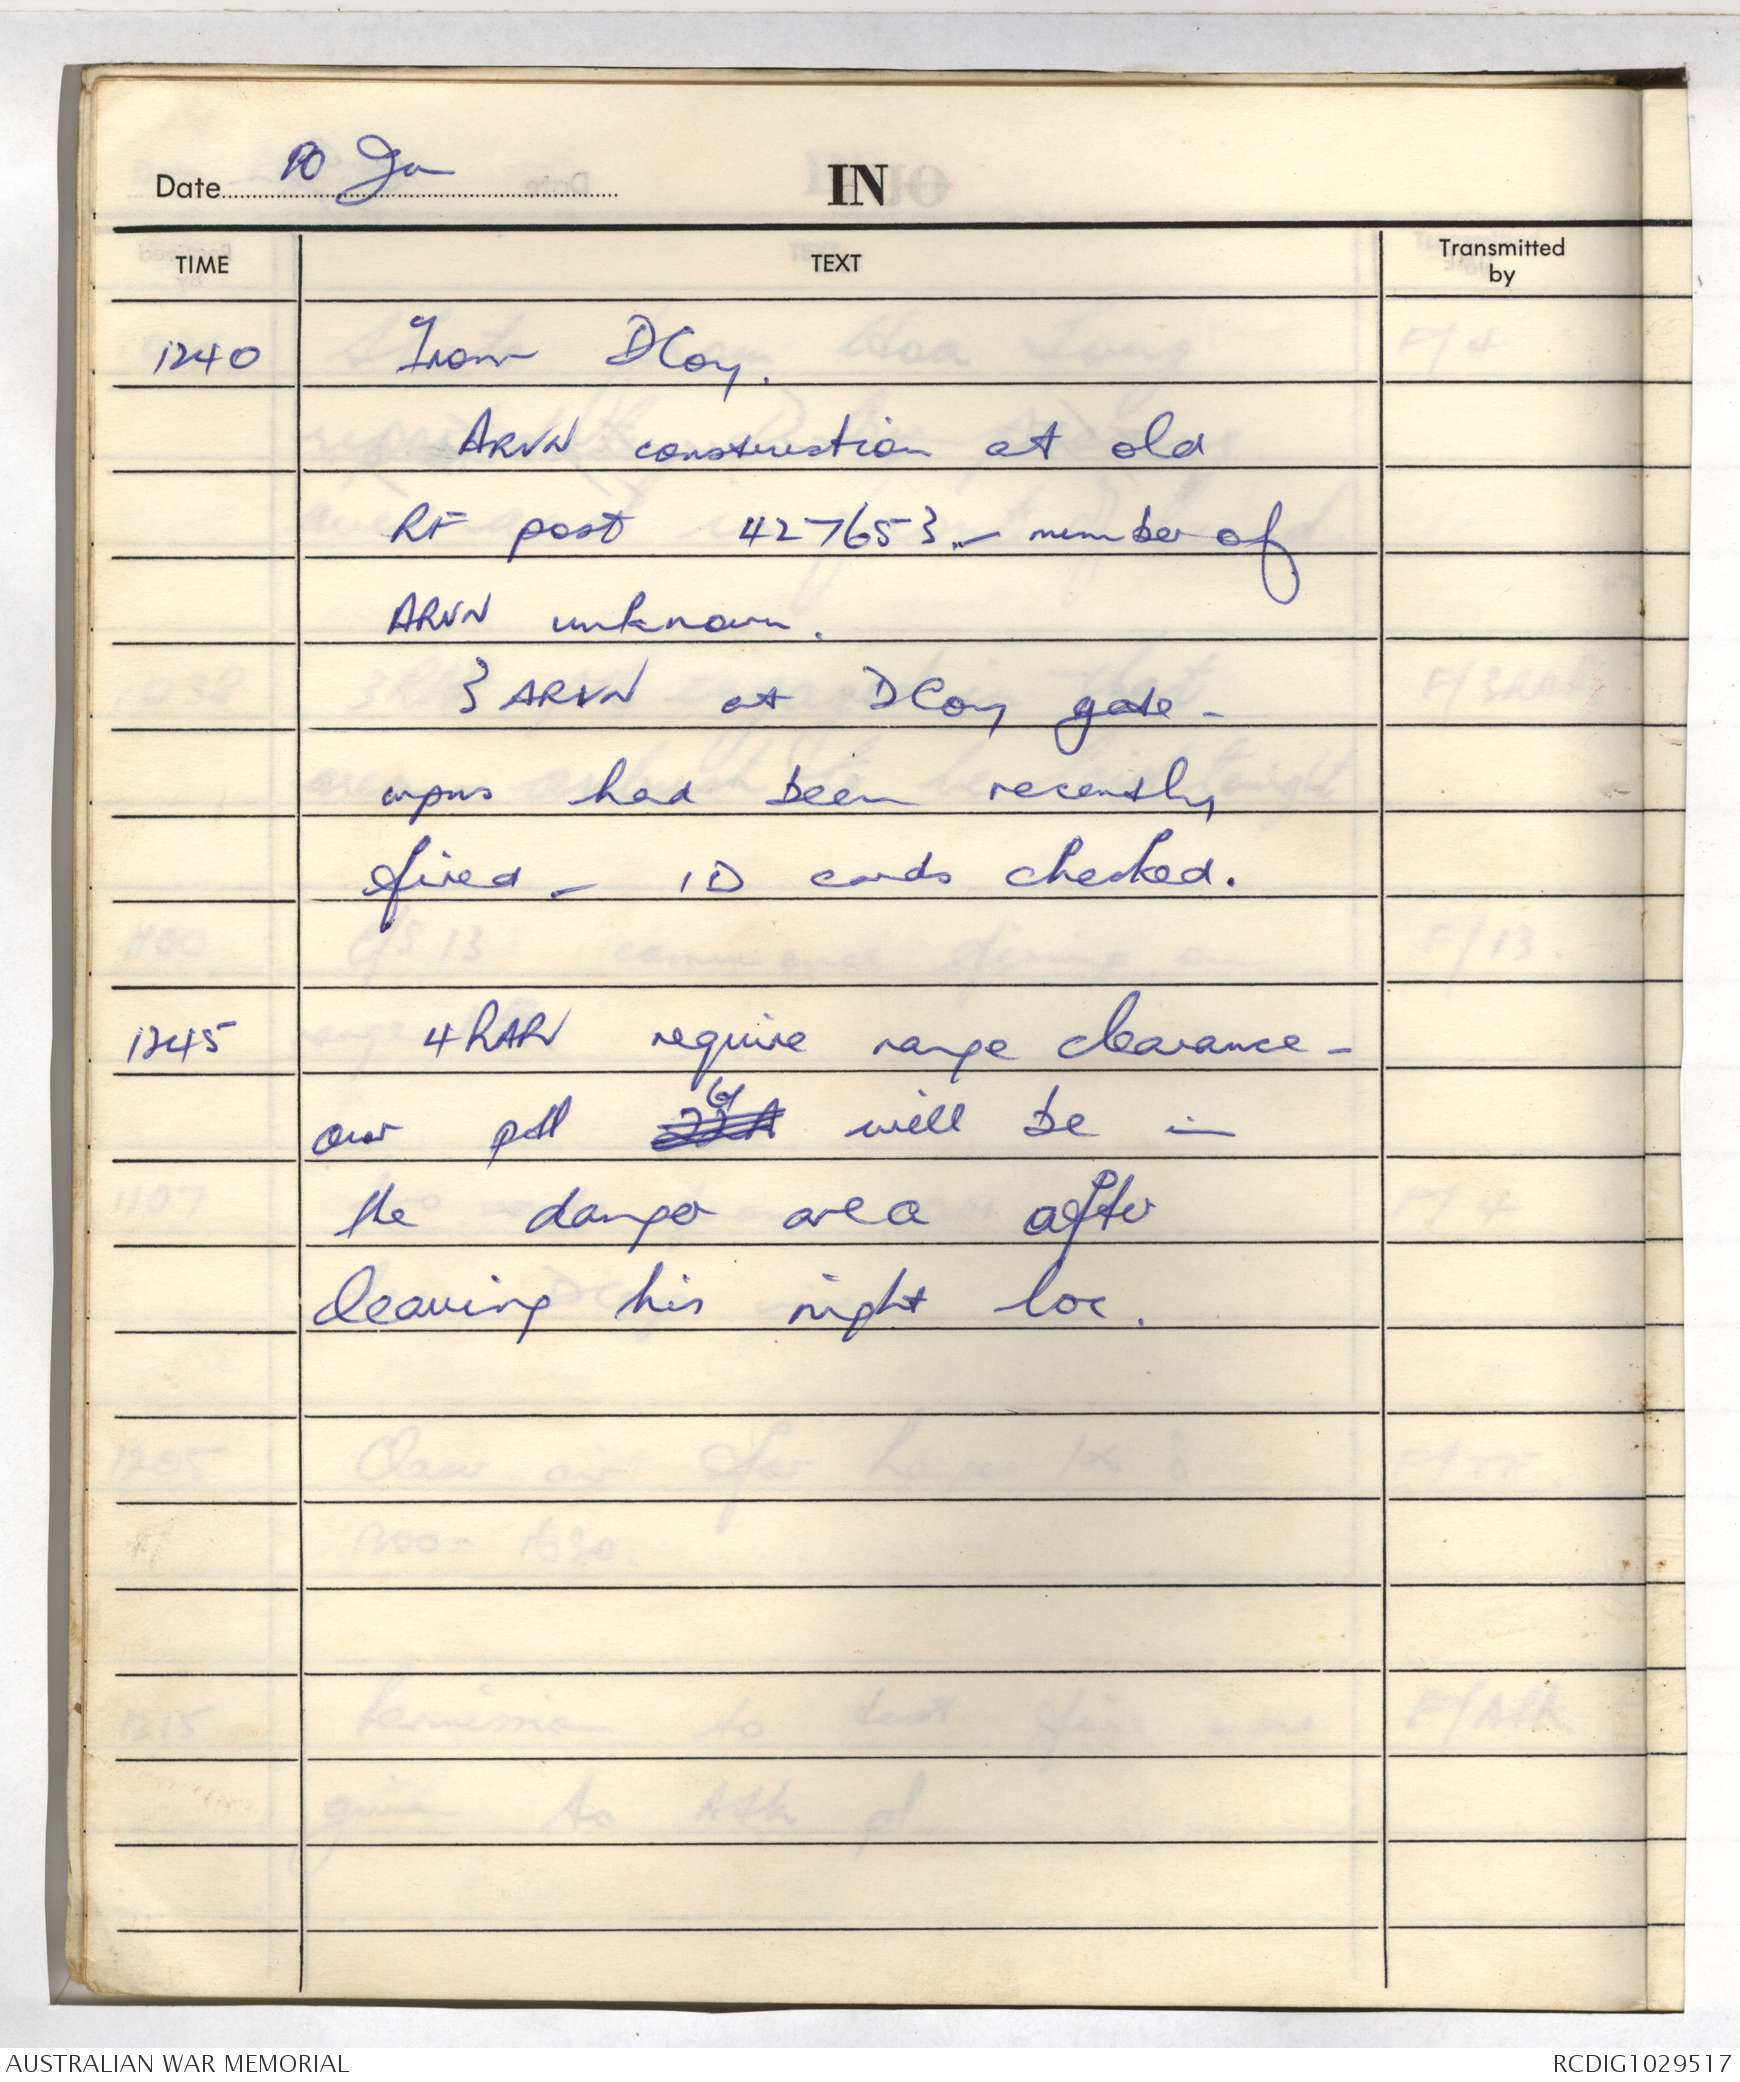 Date 10 Jan
IN
TIME
TEXT
Transmitted by
1240 From D Coy.
ARVN construction at old
RF post 427653. - number of
ARVN unknown.
3 ARVN at D Coy gate -
wpns had been recently
fired - ID cards checked.
1245 4RAR require range clearance -
our ptl will be in
the danger area after
leaving his night loc.
AUSTRALIAN WAR MEMORIAL
RCDIG1029517